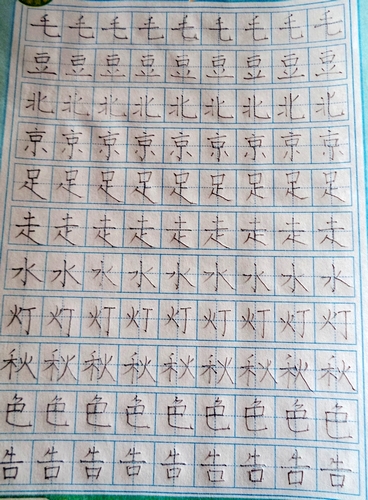 毛毛毛毛毛毛毛毛毛
豆豆豆豆豆豆豆豆豆
北北北北北北北北北
京京京京京京京京京
足足足足足足足足足
走走走走走走走走走
水水水水水水水水水
灯灯灯灯灯灯灯灯灯
秋秋秋秋秋秋秋秋秋
色色色色色色色色色
告告告告告告告告告